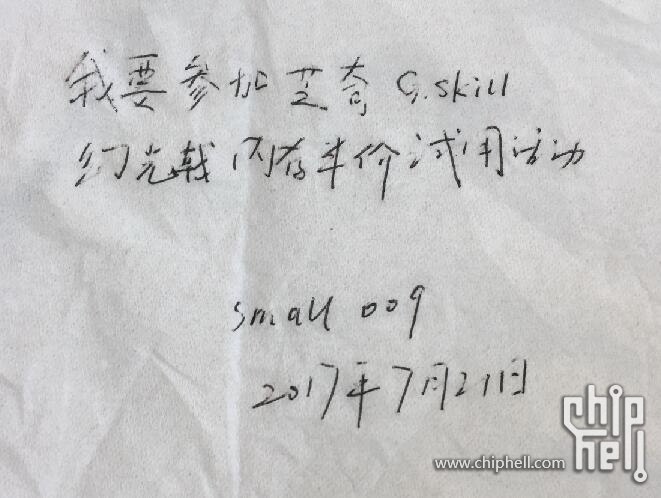 我要参加芝奇 G.skill
幻光戟内存半价试用活动
small 009
2017年7月21日
chip
hell
www.chiphell.com